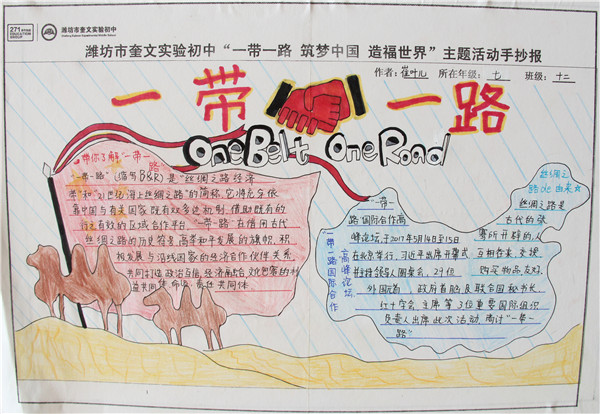 271 BTIDE
EDUCATION
GROUP
潍坊市奎文实验初中
潍坊市奎文实验初中“一带一路 筑梦中国 造福世界”主题活动手抄报
作者：崔叶儿 所在年级：七 班级：十二
一带一路
One Belt One Road
带你了解“一带一路”
“一带一路”（缩写B&R）是“丝绸之路经济
带”和“21世纪海上丝绸之路”的简称，它将充分依
靠中国与有关国家既有双多边机制，借助既有的
行之有效的区域合作平台，“一带一路”在借用古代
丝绸之路的历史符号，高举和平发展的旗帜，积
极发展与沿线国家的经济合作伙伴关系，
共同打造政治互信、经济融合、文化包容的利
益共同体、命运、责任共同体
一带一路国际合作
高峰论坛
“一带一
路”国际合作高
峰论坛，于2017年5月14日至15日
在北京举行，习近平出席开幕式，
并主持领导人圆桌会，29位
外国元首 政府首脑及联合国秘书长、
红十字会主席等3位重要国际组织
负责人出席此次活动，商讨“一带一
路”
丝绸之
路de由来
丝绸之路是
古代的张
骞所开辟的，人
互相存来，交换
购买物品，友好。